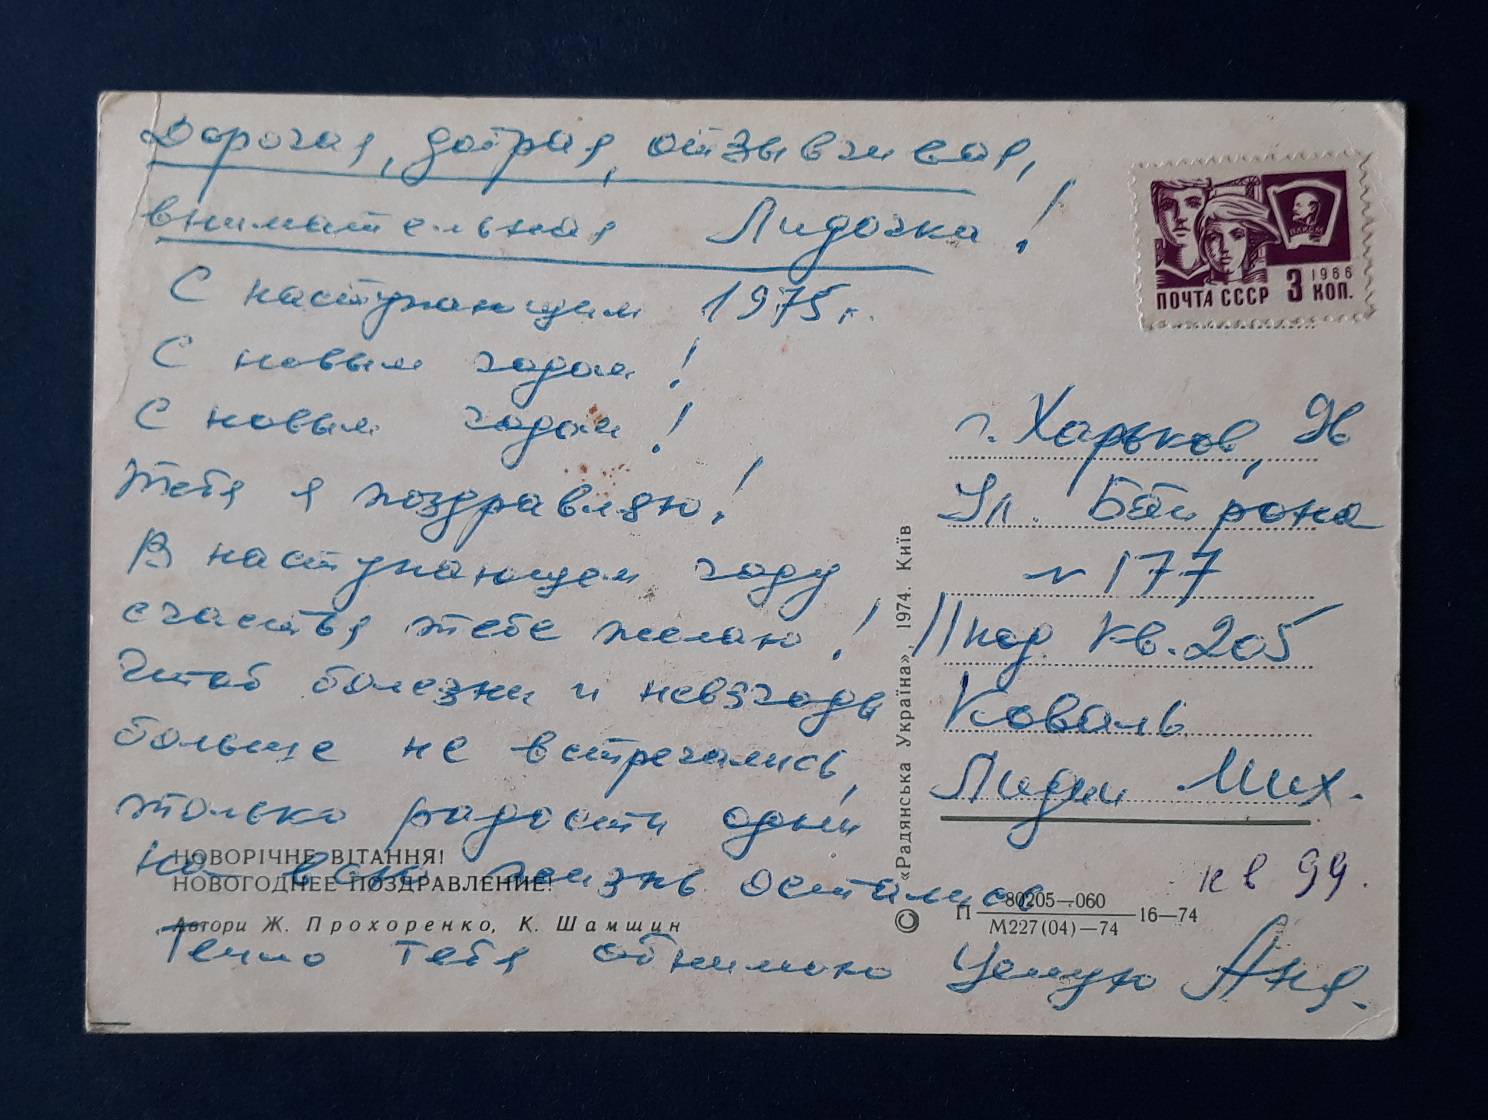 Дорогая, добрая, отзывчивая,
внимательная Лидочка!
С наступающим 1975г.
С новым годом!
С новым годом!
Тебя я поздравляю!
В наступающем году
счастья тебе желаю!
Чтоб болезни и невзгоды
больше не встречались,
только радости одни
на всю жизнь остались
Течно тебя обнимаю Целую Аня.
НОВОРІЧНЕ ВІТАННЯ!
НОВОГОДНЕЕ ПОЗДРАВЛЕНИЕ!
Автори Ж. Прохоренко, К. Шамшин
© «Радянська Україна», 1974. Київ
ВЛКСМ
ПОЧТА СССР 3 КОП. 1966
г. Харьков, 96
Ул. Байрона
N 177
II под. кв. 205
Коваль
Лидии Мих.
кв 99.
П 80205—060 16—74
М227(04)—74